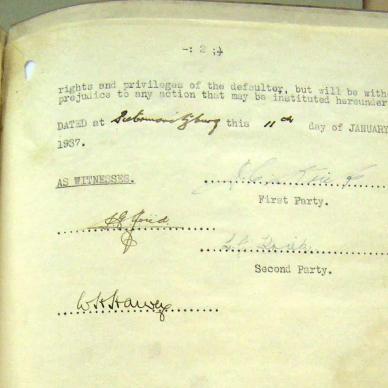 -: 2 :-
rights and privileges of the defaulter, but will be with
prejudice to any action that may be instituted hereunder
DATED at this 11th day of JANUARY
1937.
AS WITNESSES.
First Party.
Second Party.